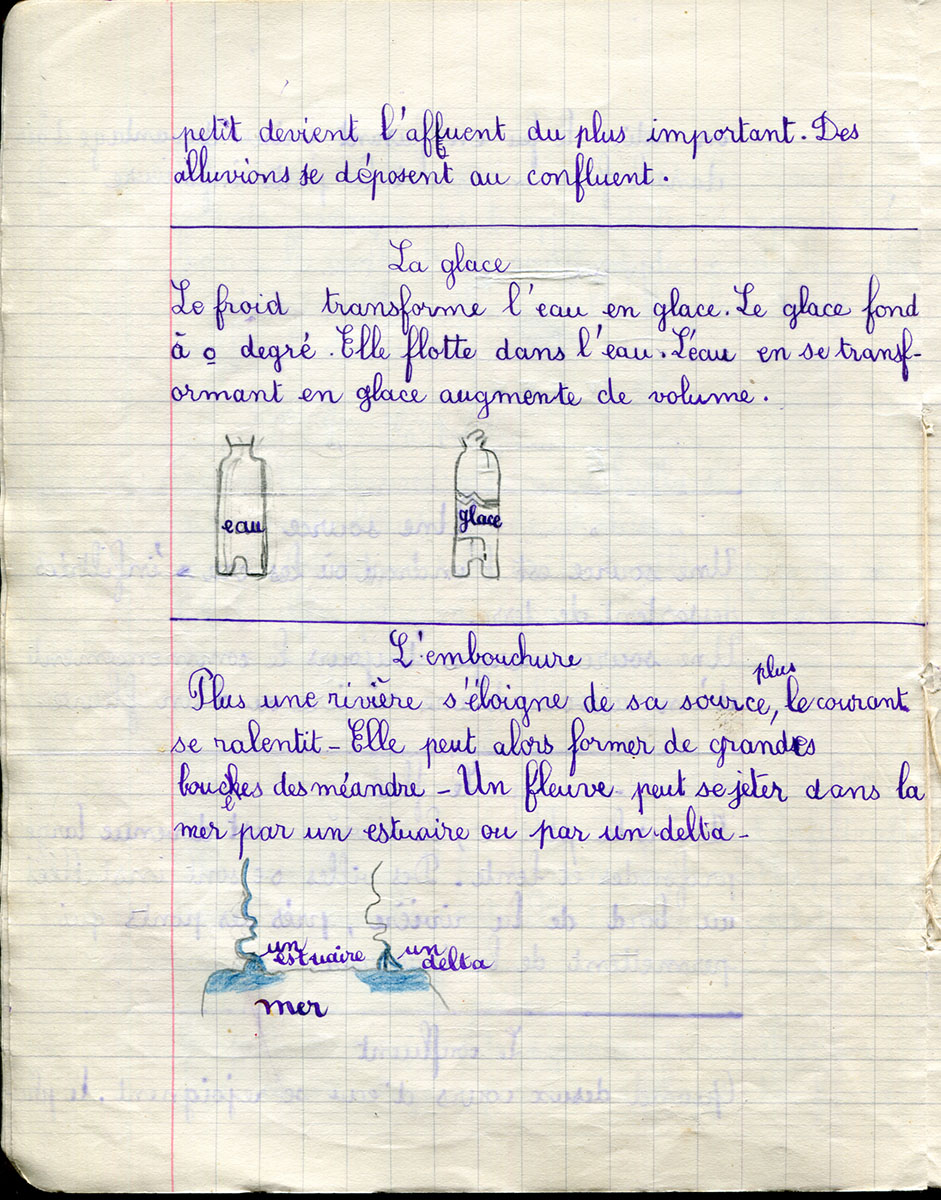 petit devient l'affluent du plus important. Des
alluvions se déposent au confluent.
La glace
Le froid transforme l'eau en glace. Le glace fond
à 0 degré. Elle flotte dans l'eau. L'eau en se transf-
ormant en glace augmente de volume.
eau
glace
L'embouchure
Plus une rivière s'éloigne de sa source, plus le courant
se ralentit - Elle peut alors former de grandes
boucles des méandre - Un fleuve peut se jeter dans la
mer par un estuaire ou par un delta -
un estuaire
un delta
mer